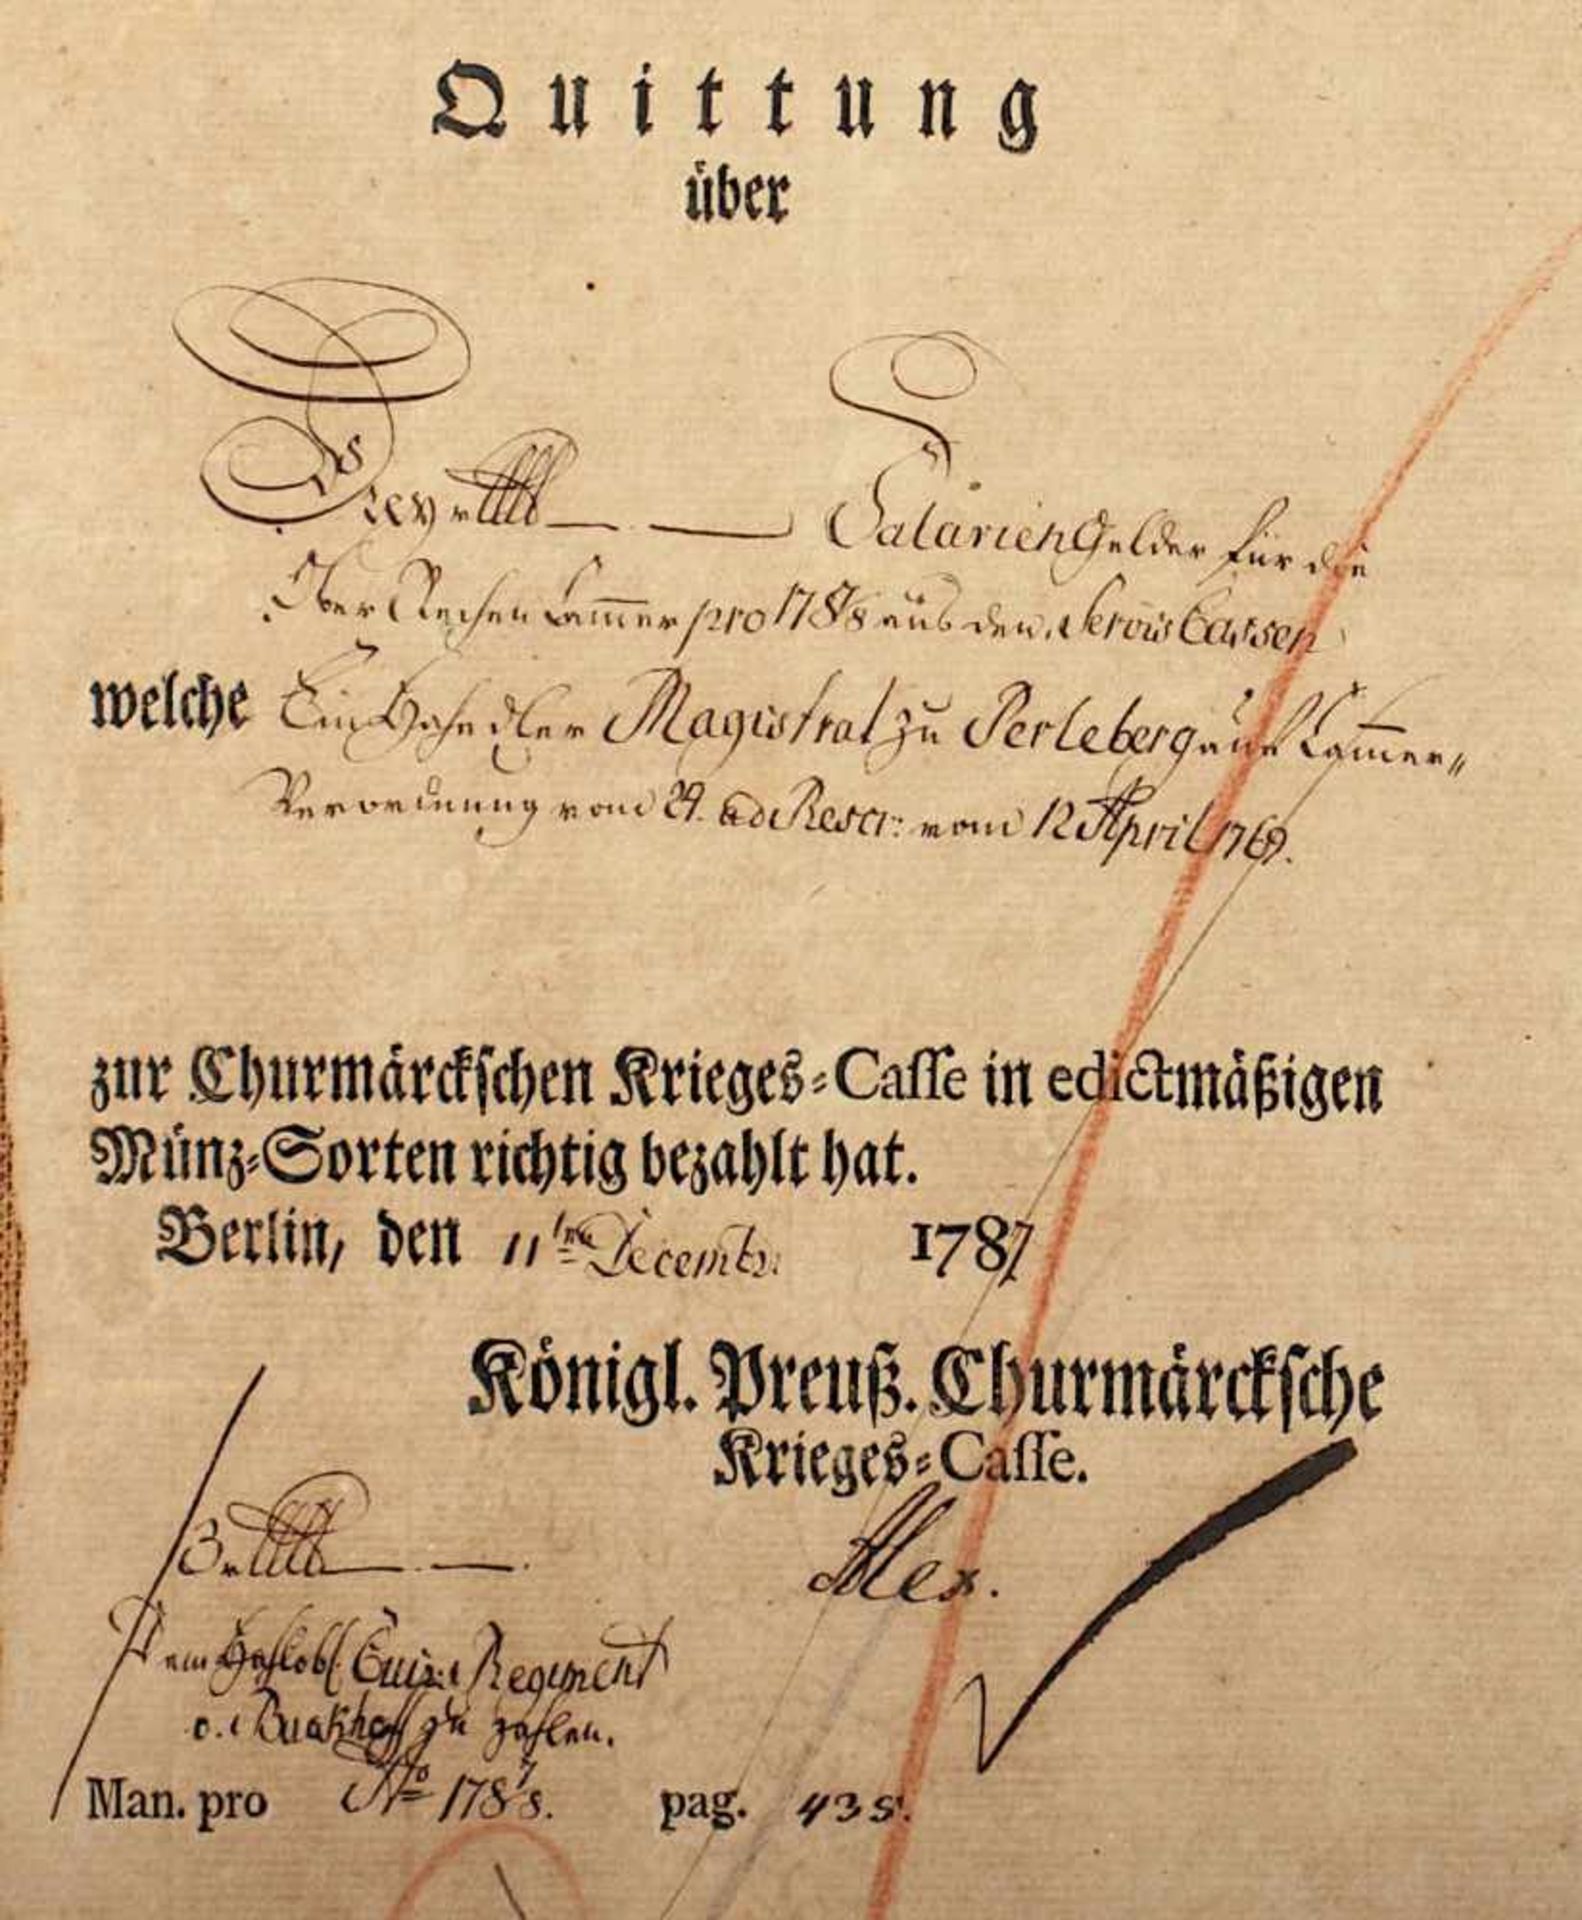 Quittung
über
Drey rthlr Salarien Gelder für die
Ober Rechen Cammer pro 178 7/8 aus den Servis Cassen
welche Ein Magistrat zu Perleberg auf Cammer=
Verordnung vom 29. ad Rescr: vom 12 April 1769.
zur Churmärckschen Krieges-Casse in edictmäßigen
Münz-Sorten richtig bezahlt hat.
Berlin, den 11ten Decembr: 1787
Königl. Preuß. Churmärcksche
Krieges-Casse.
3 rthlr Alex.
Dem Cuir: Regiment
v. zu zahlen.
Man. pro No 178 7/8. pag. 435.